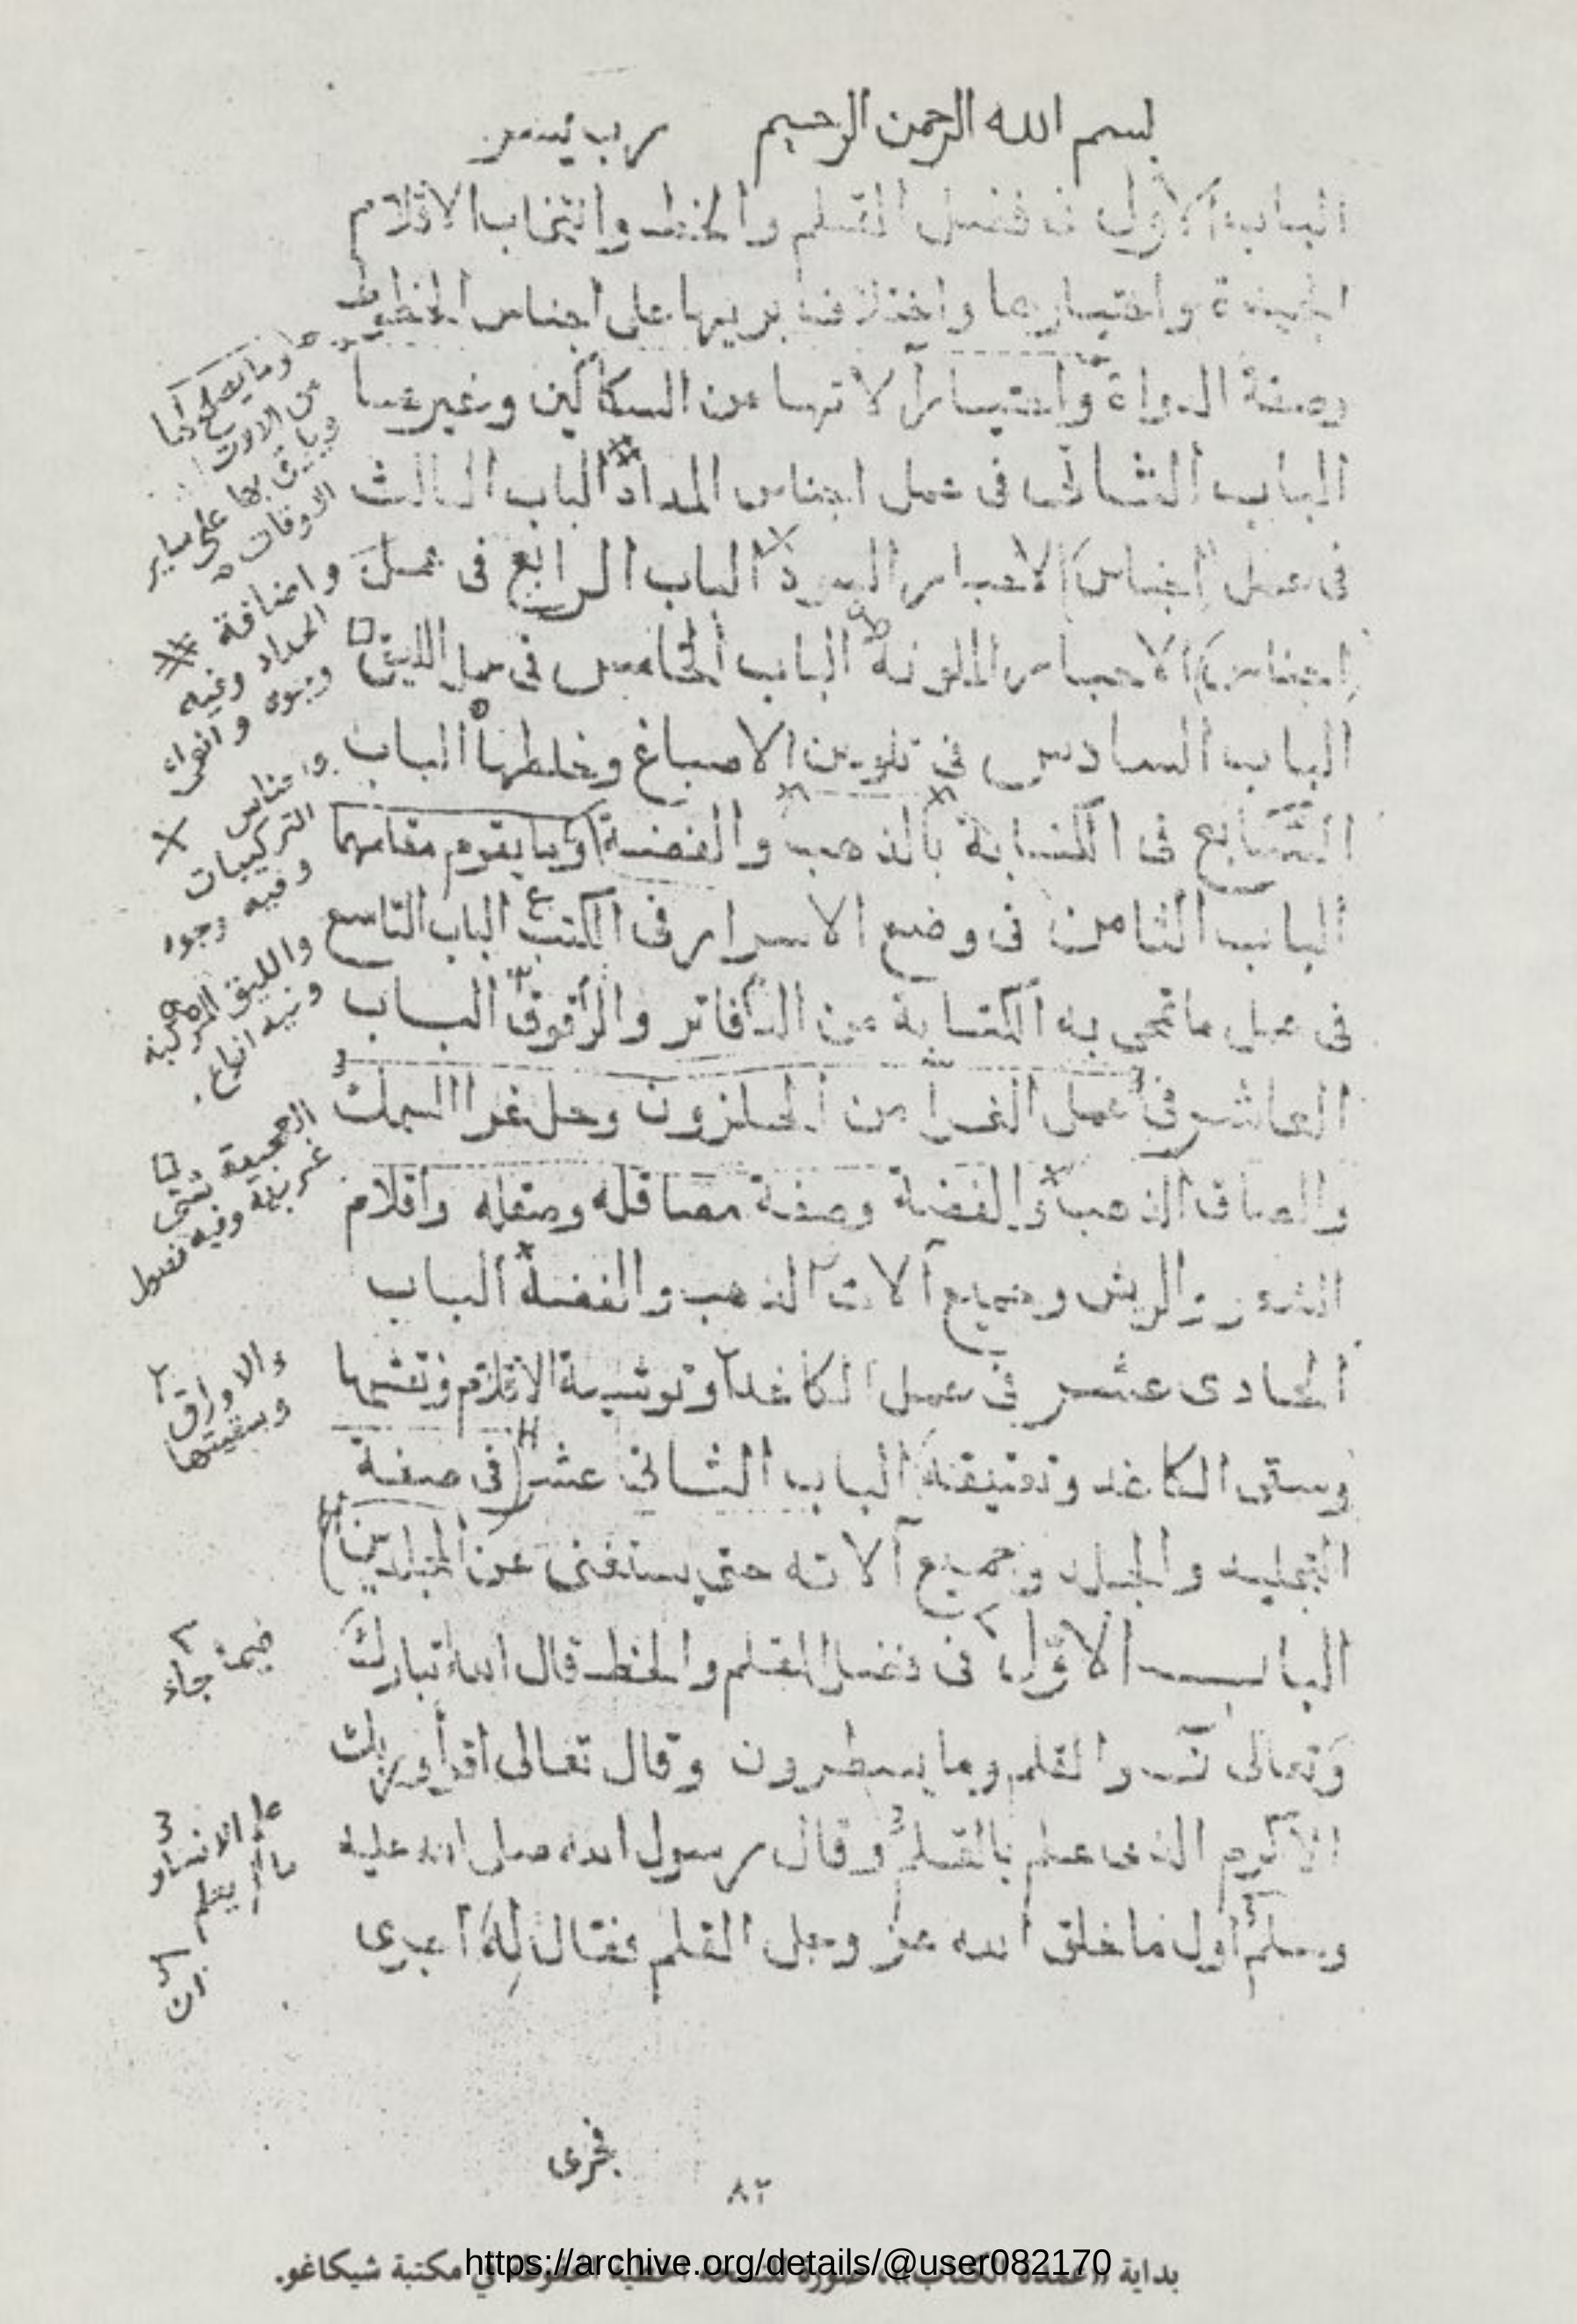 بسم الله الرحمن الرحيم رب يسر
الباب الاول فى فضل القلم والخط وانتخاب الاقلام
الجيدة واختيارها واختلاف بريها على اجناس الخطوط
وصفة الدواة واختيار آلاتها من السكاكين وغيرها
الباب الثانى فى عمل اجناس المداد الباب الثالث
فى عمل اجناس الاحبار السود الباب الرابع فى عمل
اجناس الاحبار الملونة الباب الخامس فى عمل الليق
الباب السادس فى تلوين الاصباغ وخلطها الباب
السابع فى الكتابة بالذهب والفضة وما يقوم مقامهما
الباب الثامن فى وضع الاسرار فى الكتب الباب التاسع
فى عمل ما تمحى به الكتابة من الدفاتر والرقوق الباب
العاشر فى عمل الغرا من الحلزون وحل غرا السمك
والصاق الذهب والفضة وصفة مصاقله وصقله واقلام
الشعر والريش وجميع آلات الذهب والفضة الباب
الحادى عشر فى عمل الكاغد وتوشية الاقلام ونقشها
وسقى الكاغد وتعتيقه الباب الثانى عشر فى صفة
التجليد والجلد وجميع آلاته حتى يستغنى عن المجلدين
الباب الاول فى فضل القلم والخط قال الله تبارك
وتعالى ن والقلم وما يسطرون وقال تعالى اقرأ وربك
الاكرم الذى علم بالقلم وقال رسول الله صلى الله عليه
وسلم اول ما خلق الله عز وجل القلم فقال له اجرى
وما يصلح
من الالات
على ساير
الاوقات
واضافة
المداد وفيه
واجناس
التركيبات
وفيه وجوه
والليق
وفيه
العجيبة
وفيه فصول
والاوراق
وسقيتها
فيما جاء
علم الانسان
ما لم يعلم
فجرى
٨٢
بداية «عمدة الكتاب»، صورة للنسخة الخطية المحفوظة في مكتبة شيكاغو.
https://archive.org/details/@user082170